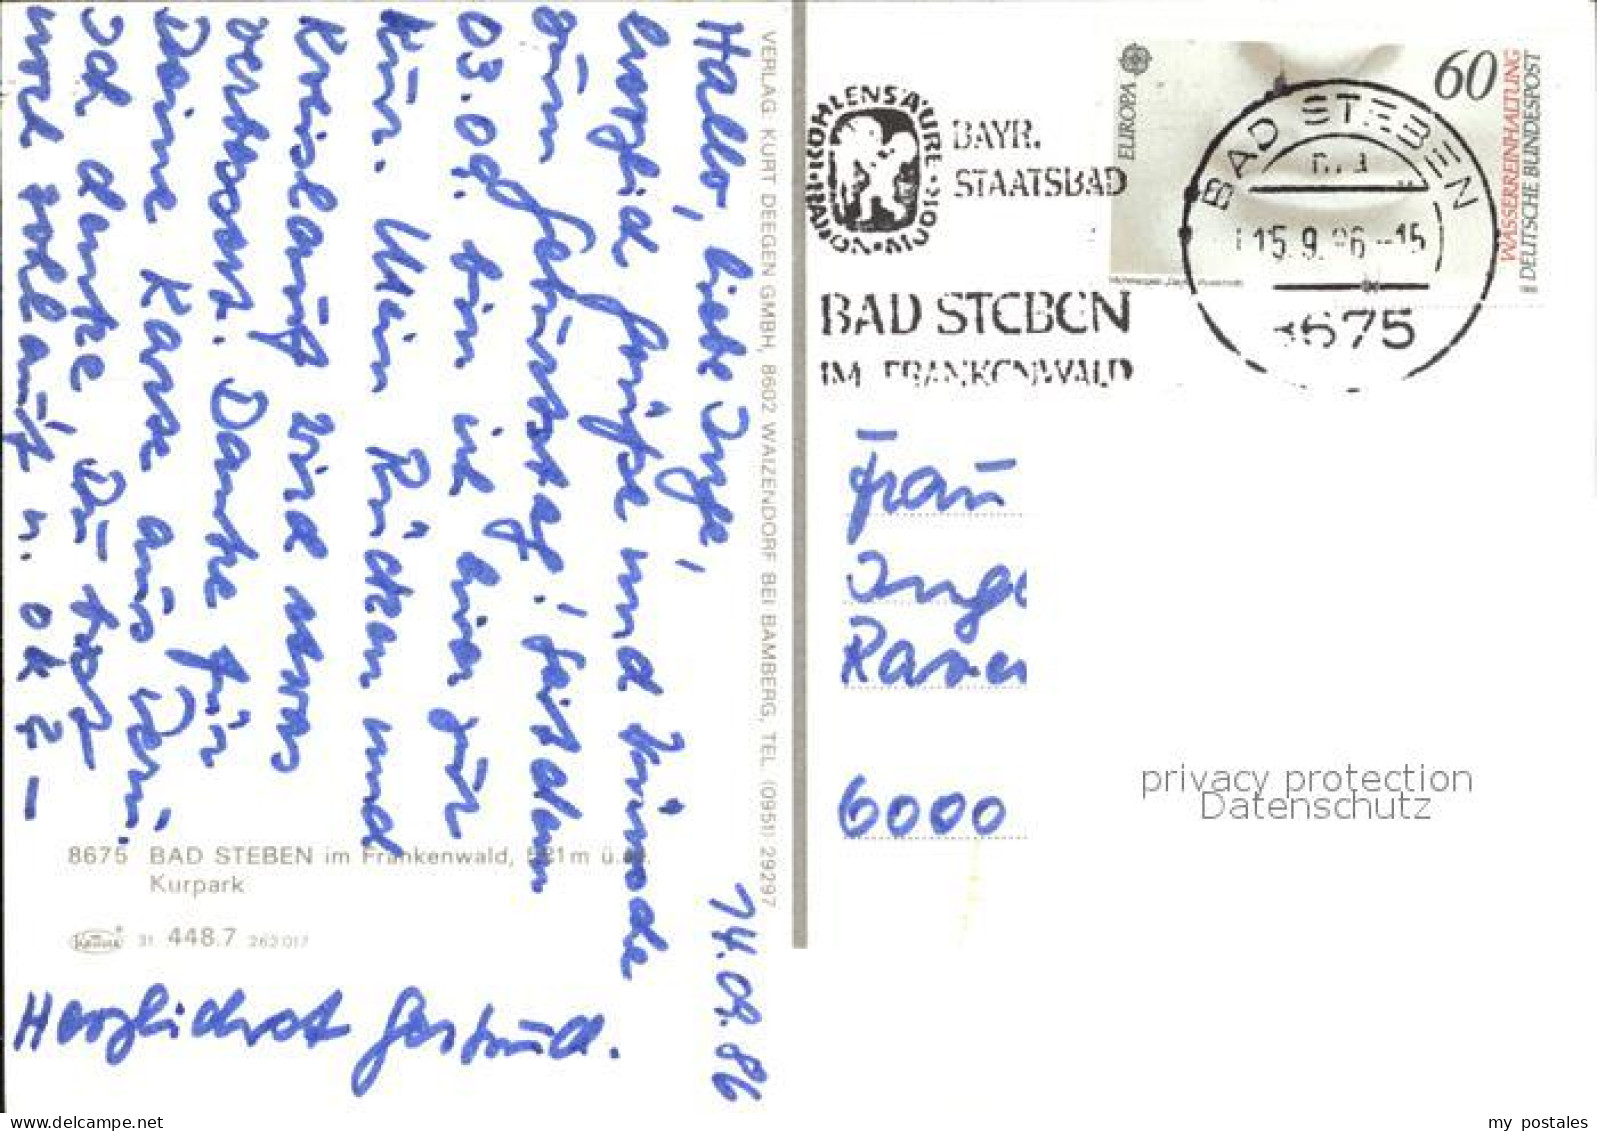 14.09.86
Hallo, liebe Inge,
herzliche Grüße und Wünsche
zum Geburtstag! Seit dem
03.09. bin ich hier zur
Kur. Mein Rücken und
Kreislauf wird etwas
verbessert. Danke für
Deine Karse aus
Ich denke, Du bist
wohlauf u. ok
Herzlichst Gertrud.
8675 BAD STEBEN im Frankenwald, ü.
Kurpark
31 448.7 262 017
VERLAG: KURT DEEGEN GMBH, 8602 WAIZENDORF BEI BAMBERG, TEL. (0951) 29297
RADON·KOHLENSÄURE·MOOR
BAYR.
STAATSBAD
BAD STEBEN
IM FRANKENWALD
EUROPA
60
WASSERREINHALTUNG
DEUTSCHE BUNDESPOST
BAD STEBEN
15.9.86-15
8675
Frau
Inge
6000
privacy protection
Datenschutz
www.delcampe.net
my_postales